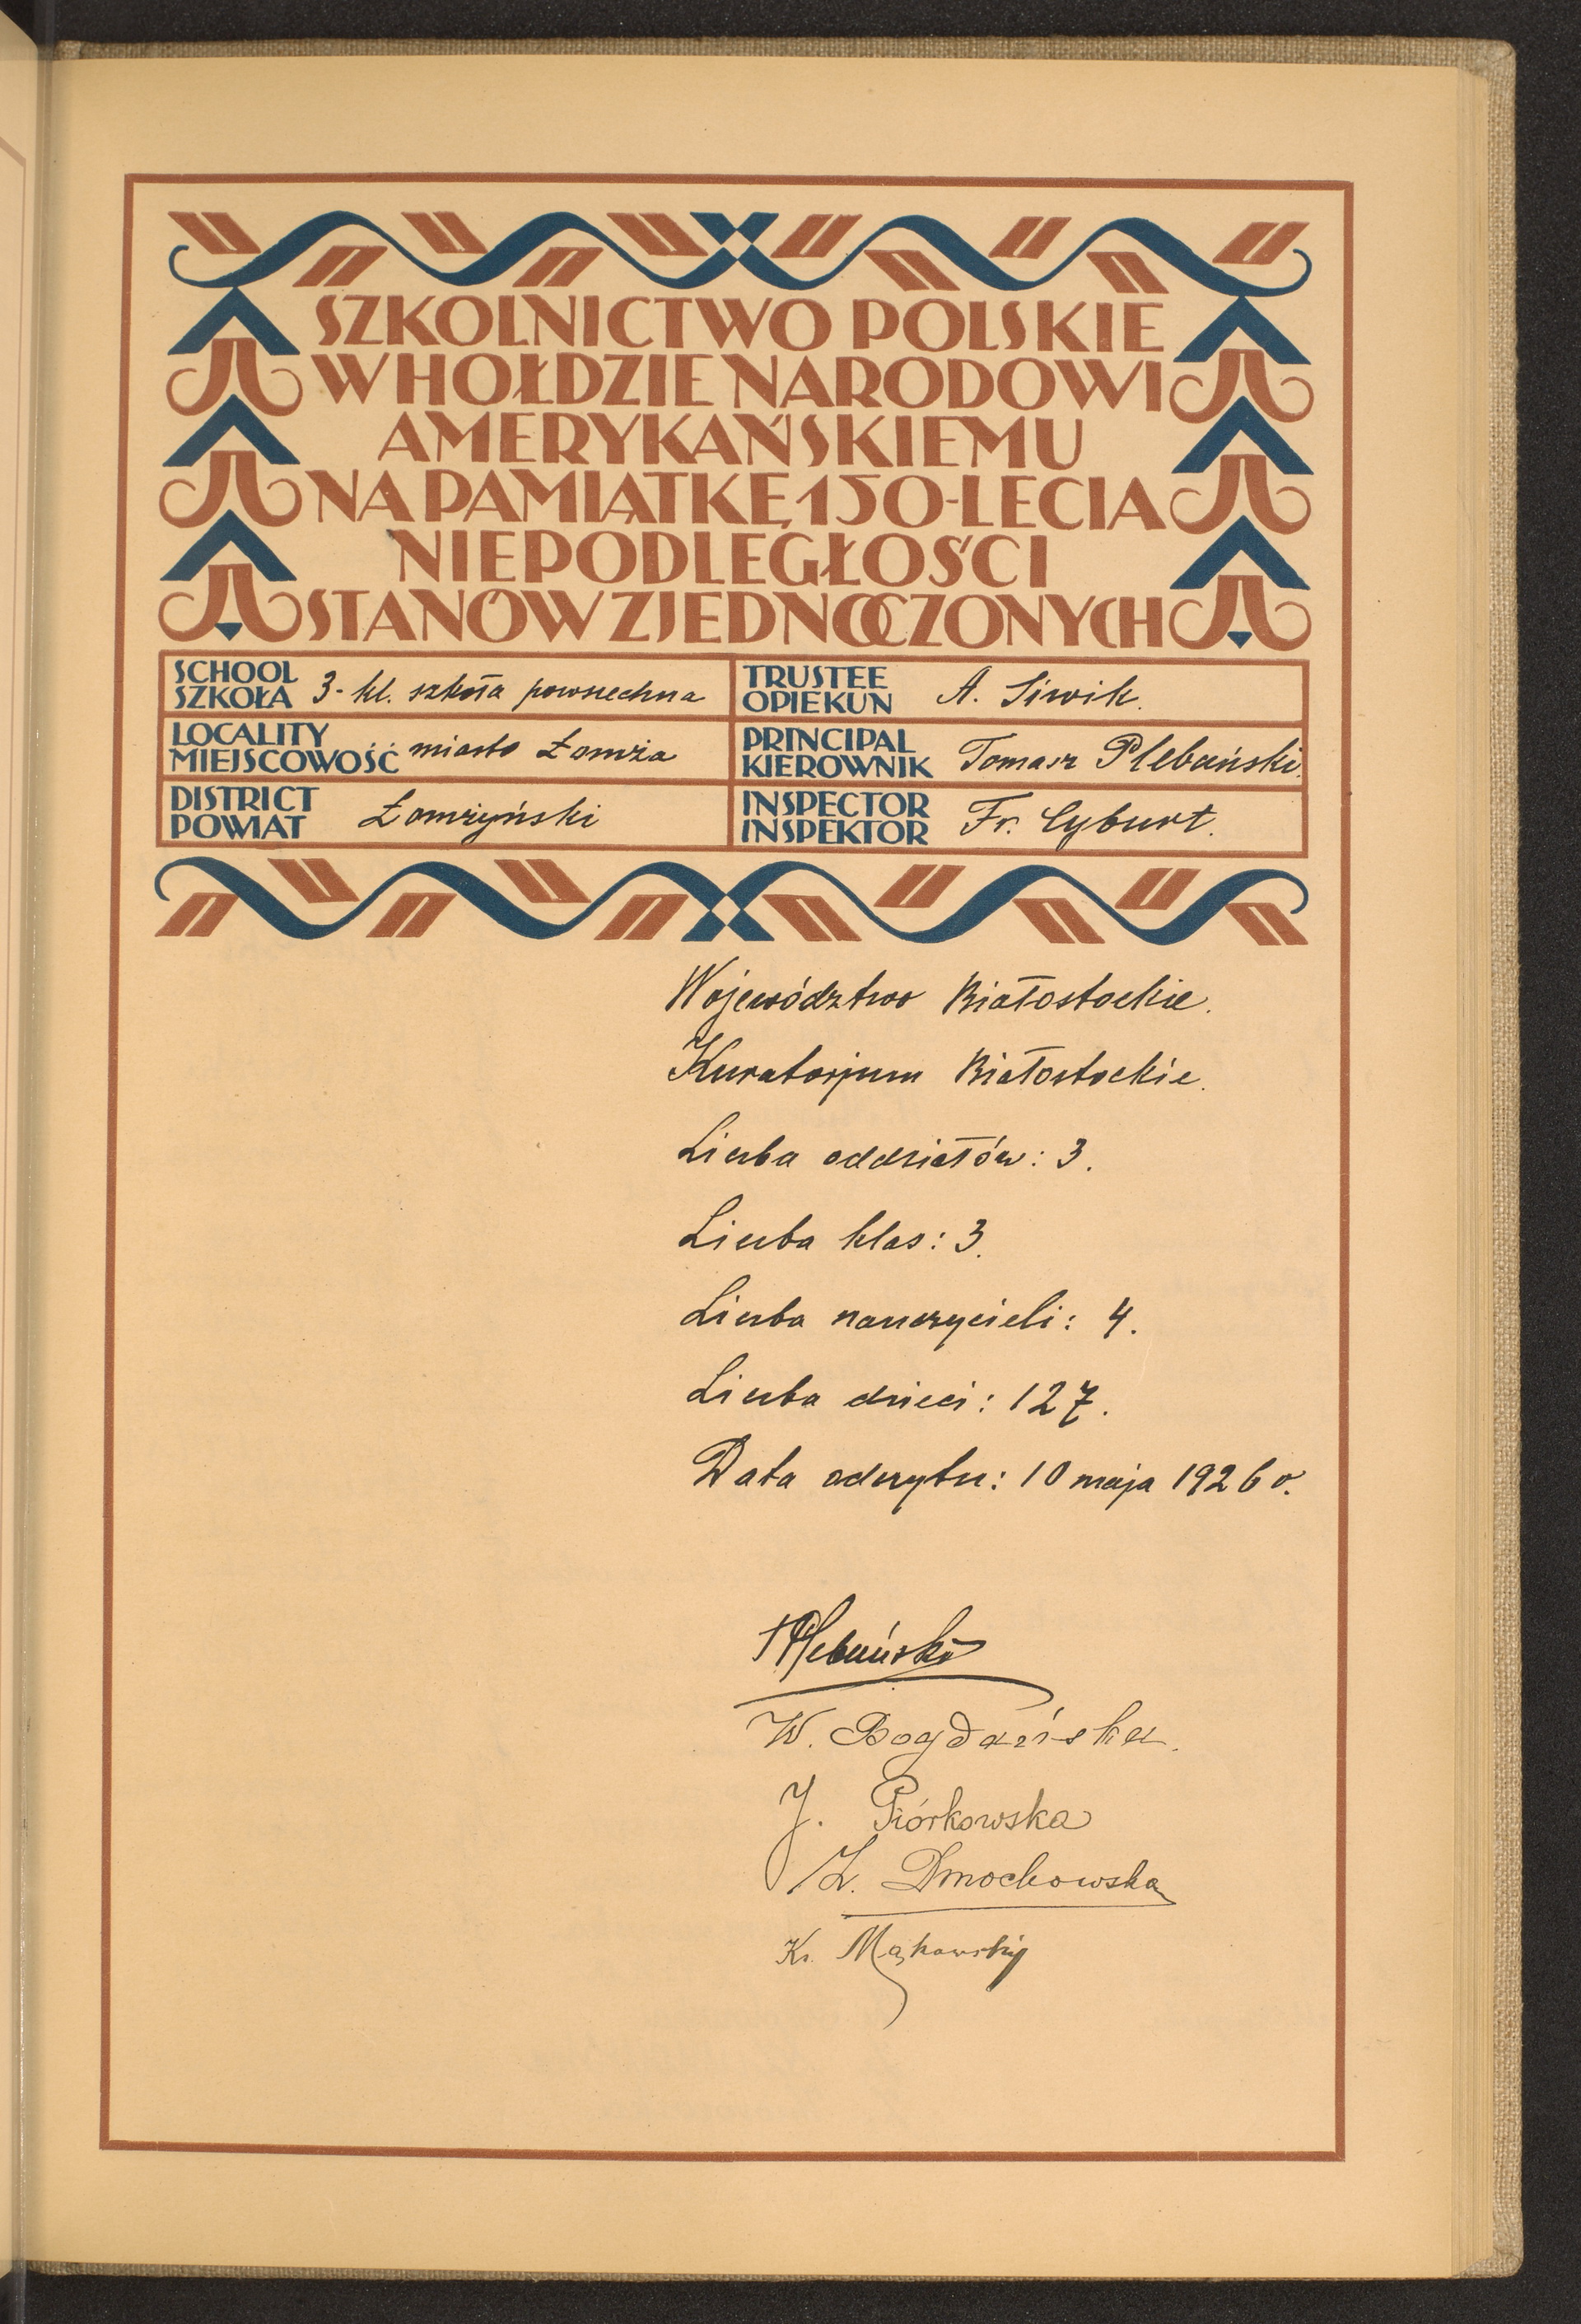 SZKOLNICTWO POLSKIE
W HOŁDZIE NARODOWI
AMERYKAŃSKIEMU
NA PAMIĄTKĘ 150-LECIA
NIEPODLEGŁOŚCI
STANÓW ZJEDNOCZONYCH
SCHOOL
SZKOŁA 3-kl. szkoła powszechna
TRUSTEE
OPIEKUN A. Siwik.
LOCALITY
MIEJSCOWOŚĆ miasto Łomża
PRINCIPAL
KIEROWNIK Tomasz Plebański.
DISTRICT
POWIAT Łomżyński
INSPECTOR
INSPEKTOR Fr. Cyburt.
Województwo Białostockie.
Kuratorjum Białostockie.
Liczba oddziałów: 3.
Liczba klas: 3.
Liczba nauczycieli: 4.
Liczba dzieci: 127.
Data odczytu: 10 maja 1926 r.
T Plebański
W. Bogdańska.
J. Piórkowska
Z. Dmochowska
Ks. Mąkowski